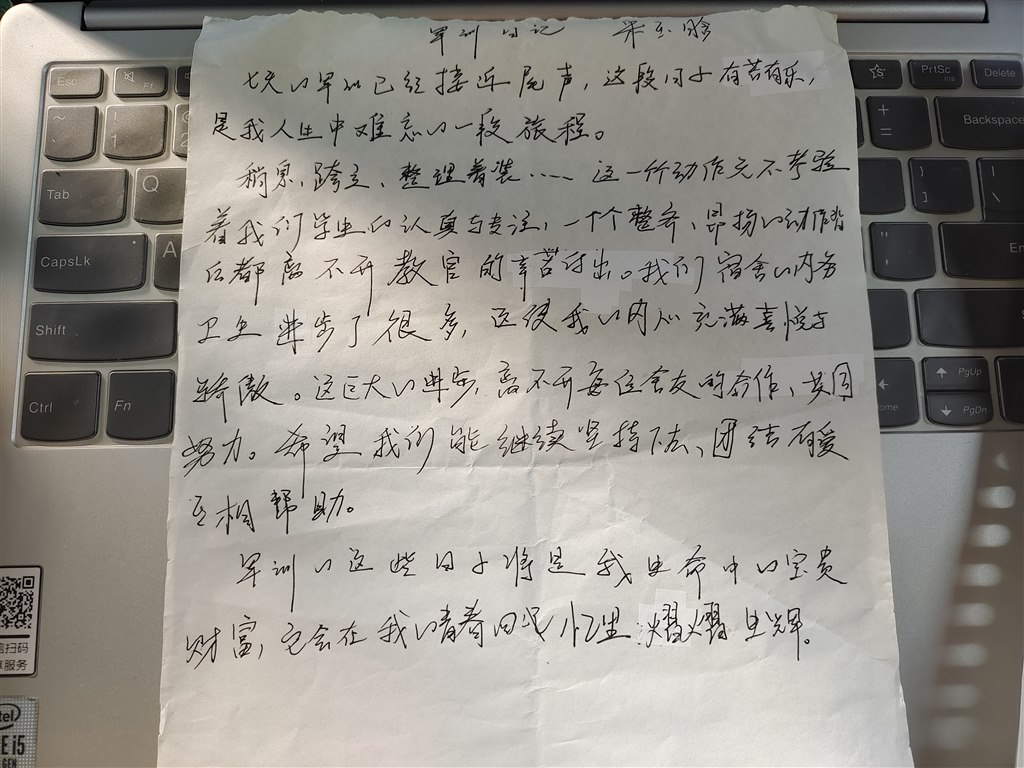 军训日记 宋玉晗
七天的军训已经接近尾声，这段日子有苦有乐，
是我人生中难忘的一段旅程。
稍息、跨立、整理着装……这一个个动作无不考验
着我们学生的认真与专注，一个个整齐、昂扬的动作背
后都离不开教官的辛苦付出。我们宿舍的内务
卫生进步了很多，这使我的内心充满喜悦与
骄傲。这巨大的进步，离不开每位舍友的合作、共同
努力。希望我们能继续坚持下去、团结有爱
互相帮助。
军训的这些日子将是我生命中的宝贵
财富，它会在我的青春回忆里熠熠生辉。
Esc
F1
PrtSc
Ins
Delete
Backspace
Tab
Q
CapsLk
A
Shift
Ctrl
Fn
PgUp
PgDn